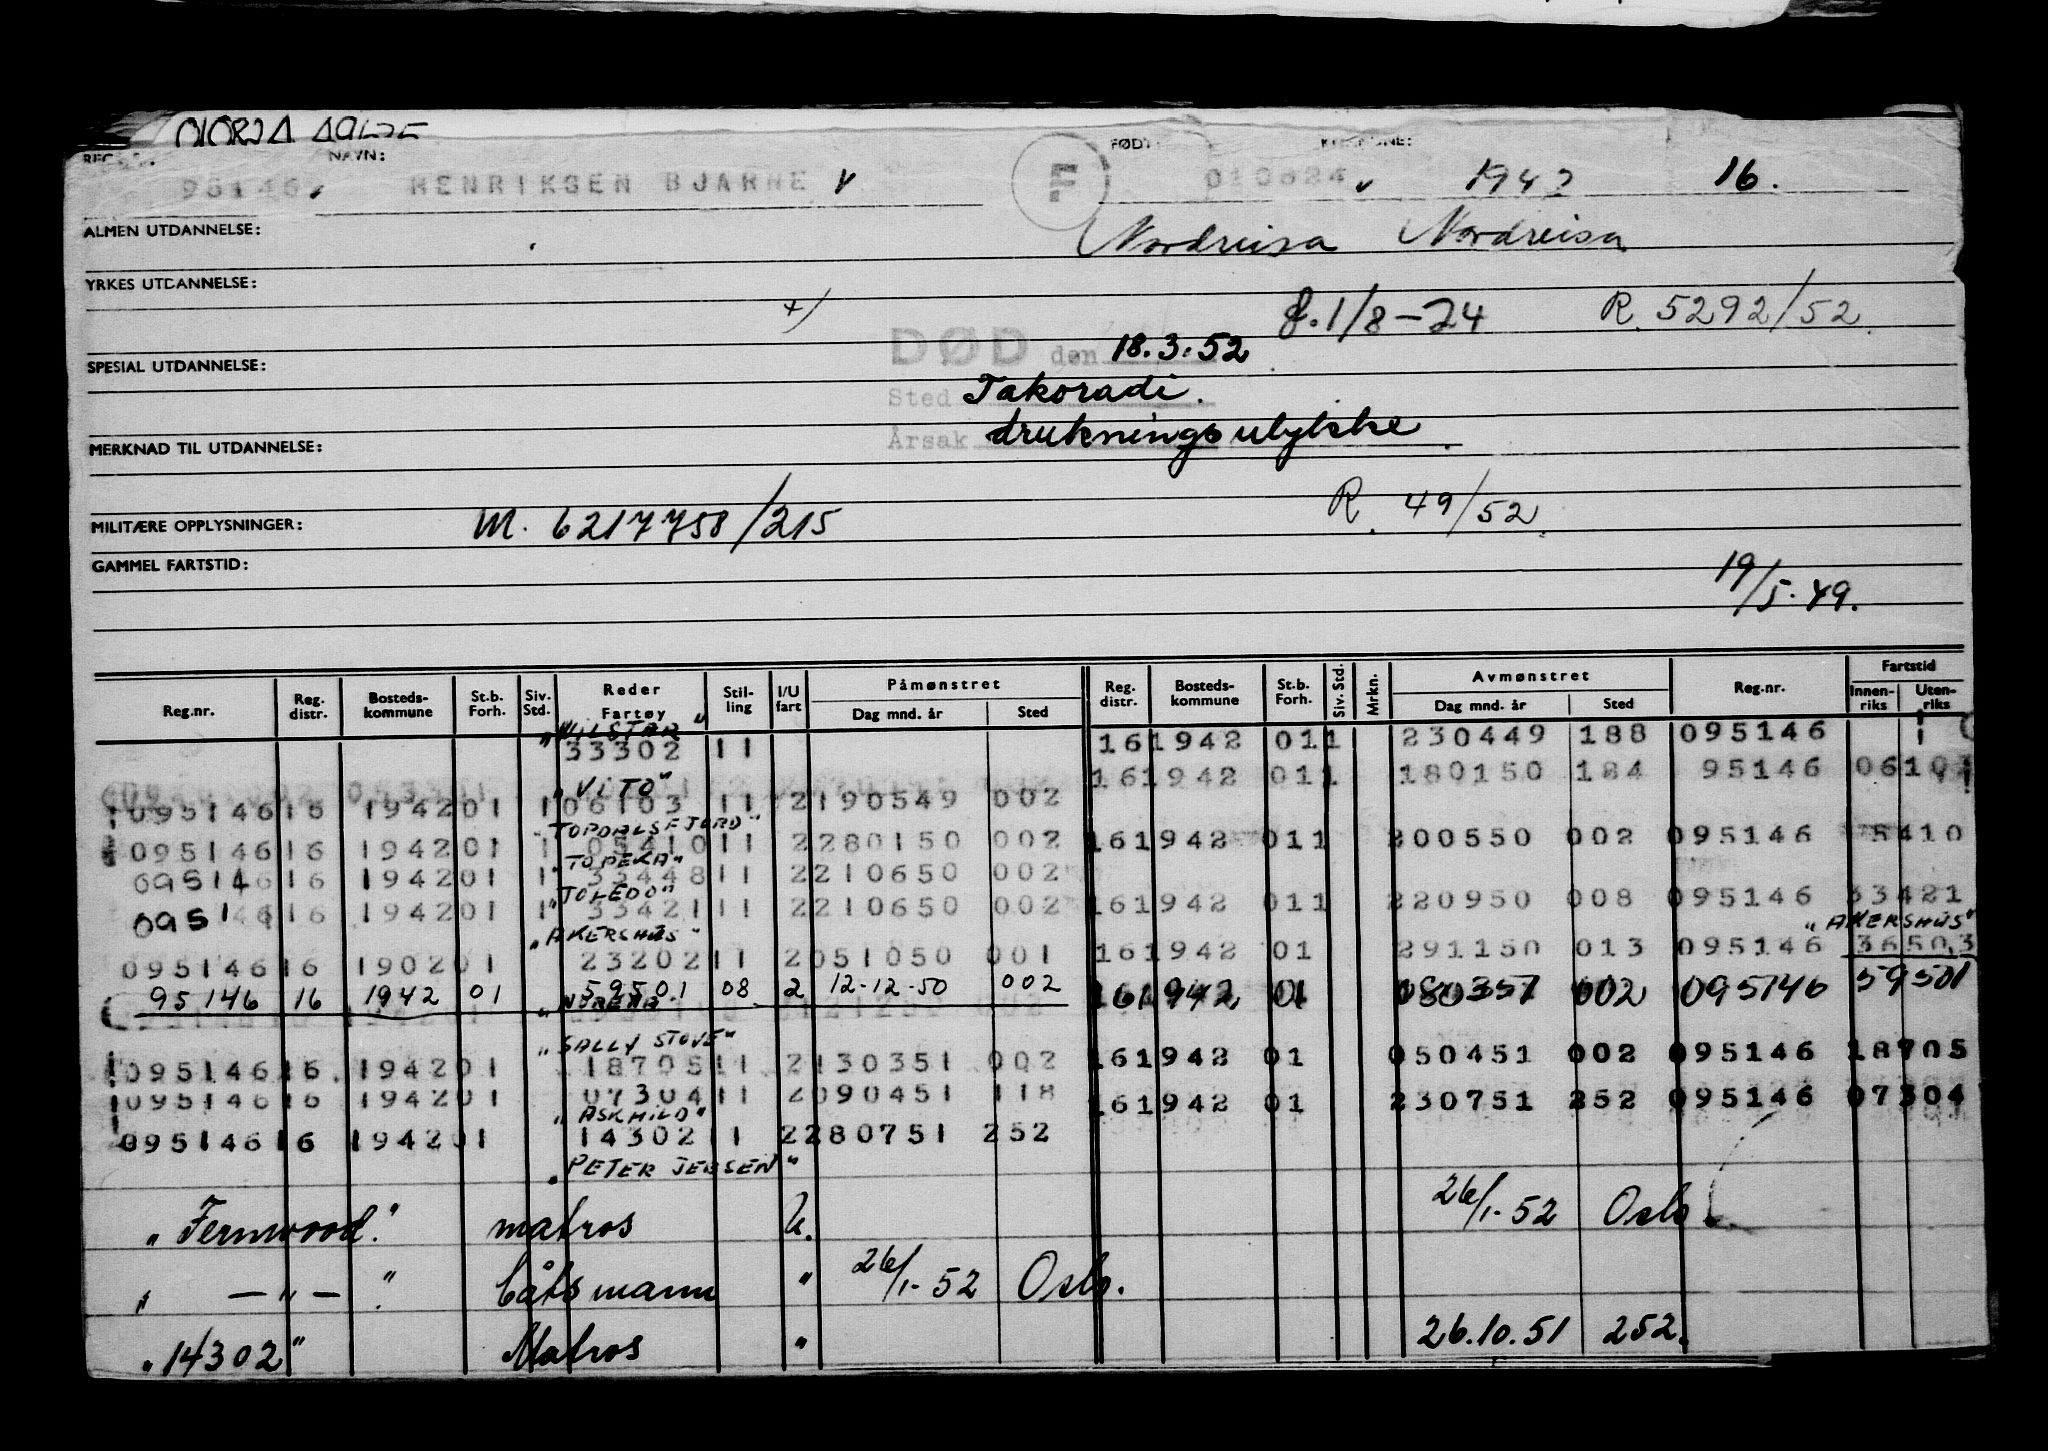 NAVN: FØDT: KOMMUNE:
95146. HENRIKSEN BJARNE v F 010824 v 1942 16.
ALMEN UTDANNELSE: Nordreisa Nordreisa
YRKES UTDANNELSE: +)
f. 1/8-24 R. 5292/52.
DØD den 18.3.52
SPESIAL UTDANNELSE:
Sted Takoradi.
Årsak drukningsulykke.
MERKNAD TIL UTDANNELSE:
R. 49/52.
MILITÆRE OPPLYSNINGER: M. 6217758/215
GAMMEL FARTSTID:
19/5-49.
Reg.nr. Reg. distr. Bosteds- kommune St.b. Forh. Siv. Std. Reder Fartøy Stil- ling I/U fart Påmønstret Dag mnd. år Sted Reg. distr. Bosteds- kommune St.b. Forh. Siv. Std. Mrkn. Avmønstret Dag mnd. år Sted Reg.nr. Fartstid Innen- riks Uten- riks
"WILSTAR"
33302 11 16 1942 01 1 230449 188 095146
16 1942 01 1 180150 184 95146 0610
"VITO"
095146 16 1942 01 1 06103 11 2 190549 002
"TOPDALSFJORD"
095146 16 1942 01 1 05410 11 2 280150 002 16 1942 01 1 200550 002 095146 5410
"TOPEKA"
095146 16 1942 01 1 33448 11 2 210650 002
"TOLEDO"
095146 16 1942 01 1 33421 11 2 210650 002 16 1942 01 1 220950 008 095146 33421
"AKERSHUS" "AKERSHUS"
095146 16 1902 01 23202 11 2 051050 001 16 1942 01 291150 013 095146 36503
95146 16 1942 01 59501 08 2 12-12-50 002 16 1942 01 080351 002 095146 59501
"SALLY STOVE"
095146 16 1942 01 18705 11 2 130351 002 16 1942 01 050451 002 095146 18705
095146 16 1942 01 07304 11 2 090451 118 16 1942 01 230751 252 095146 07304
"ASKHILD"
095146 16 1942 01 14302 11 2 280751 252
"PETER JEBSEN"
"Fernwood." matros U. 26/1-52 Oslo
" — " — ." båtsmann " 26/1-52 Oslo.
"14302" Matros " 26.10.51 252.